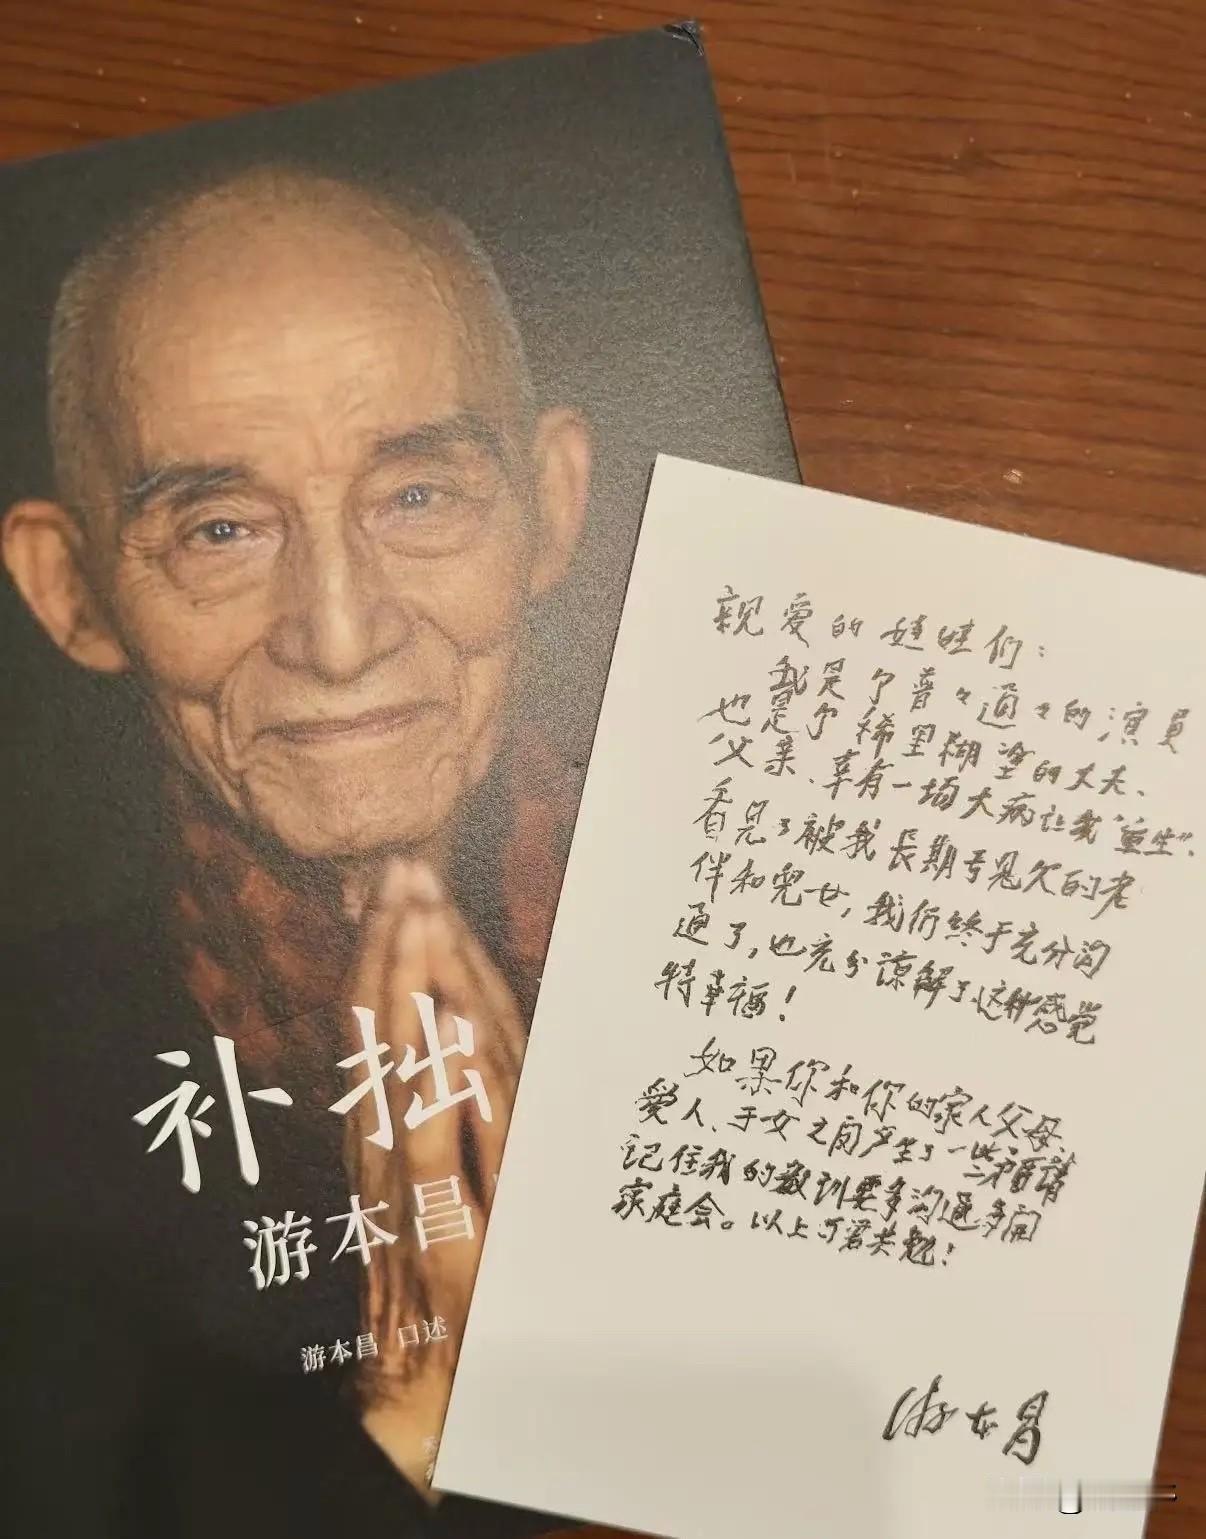 补拙
游本昌
游本昌 口述
亲爱的娃娃们：
我是个普々通々的演员
也是个稀里糊塗的丈夫、
父亲、幸有一场大病让我“重生”、
看见了被我长期亏欠的老
伴和兒女，我们终于充分沟
通了，也充分谅解了、这种感觉
特幸福！
如果你和你的家人父母、
爱人、子女之间产生了一些矛盾请
记住我的教训要多沟通多开
家庭会。以上可君共勉！
游本昌